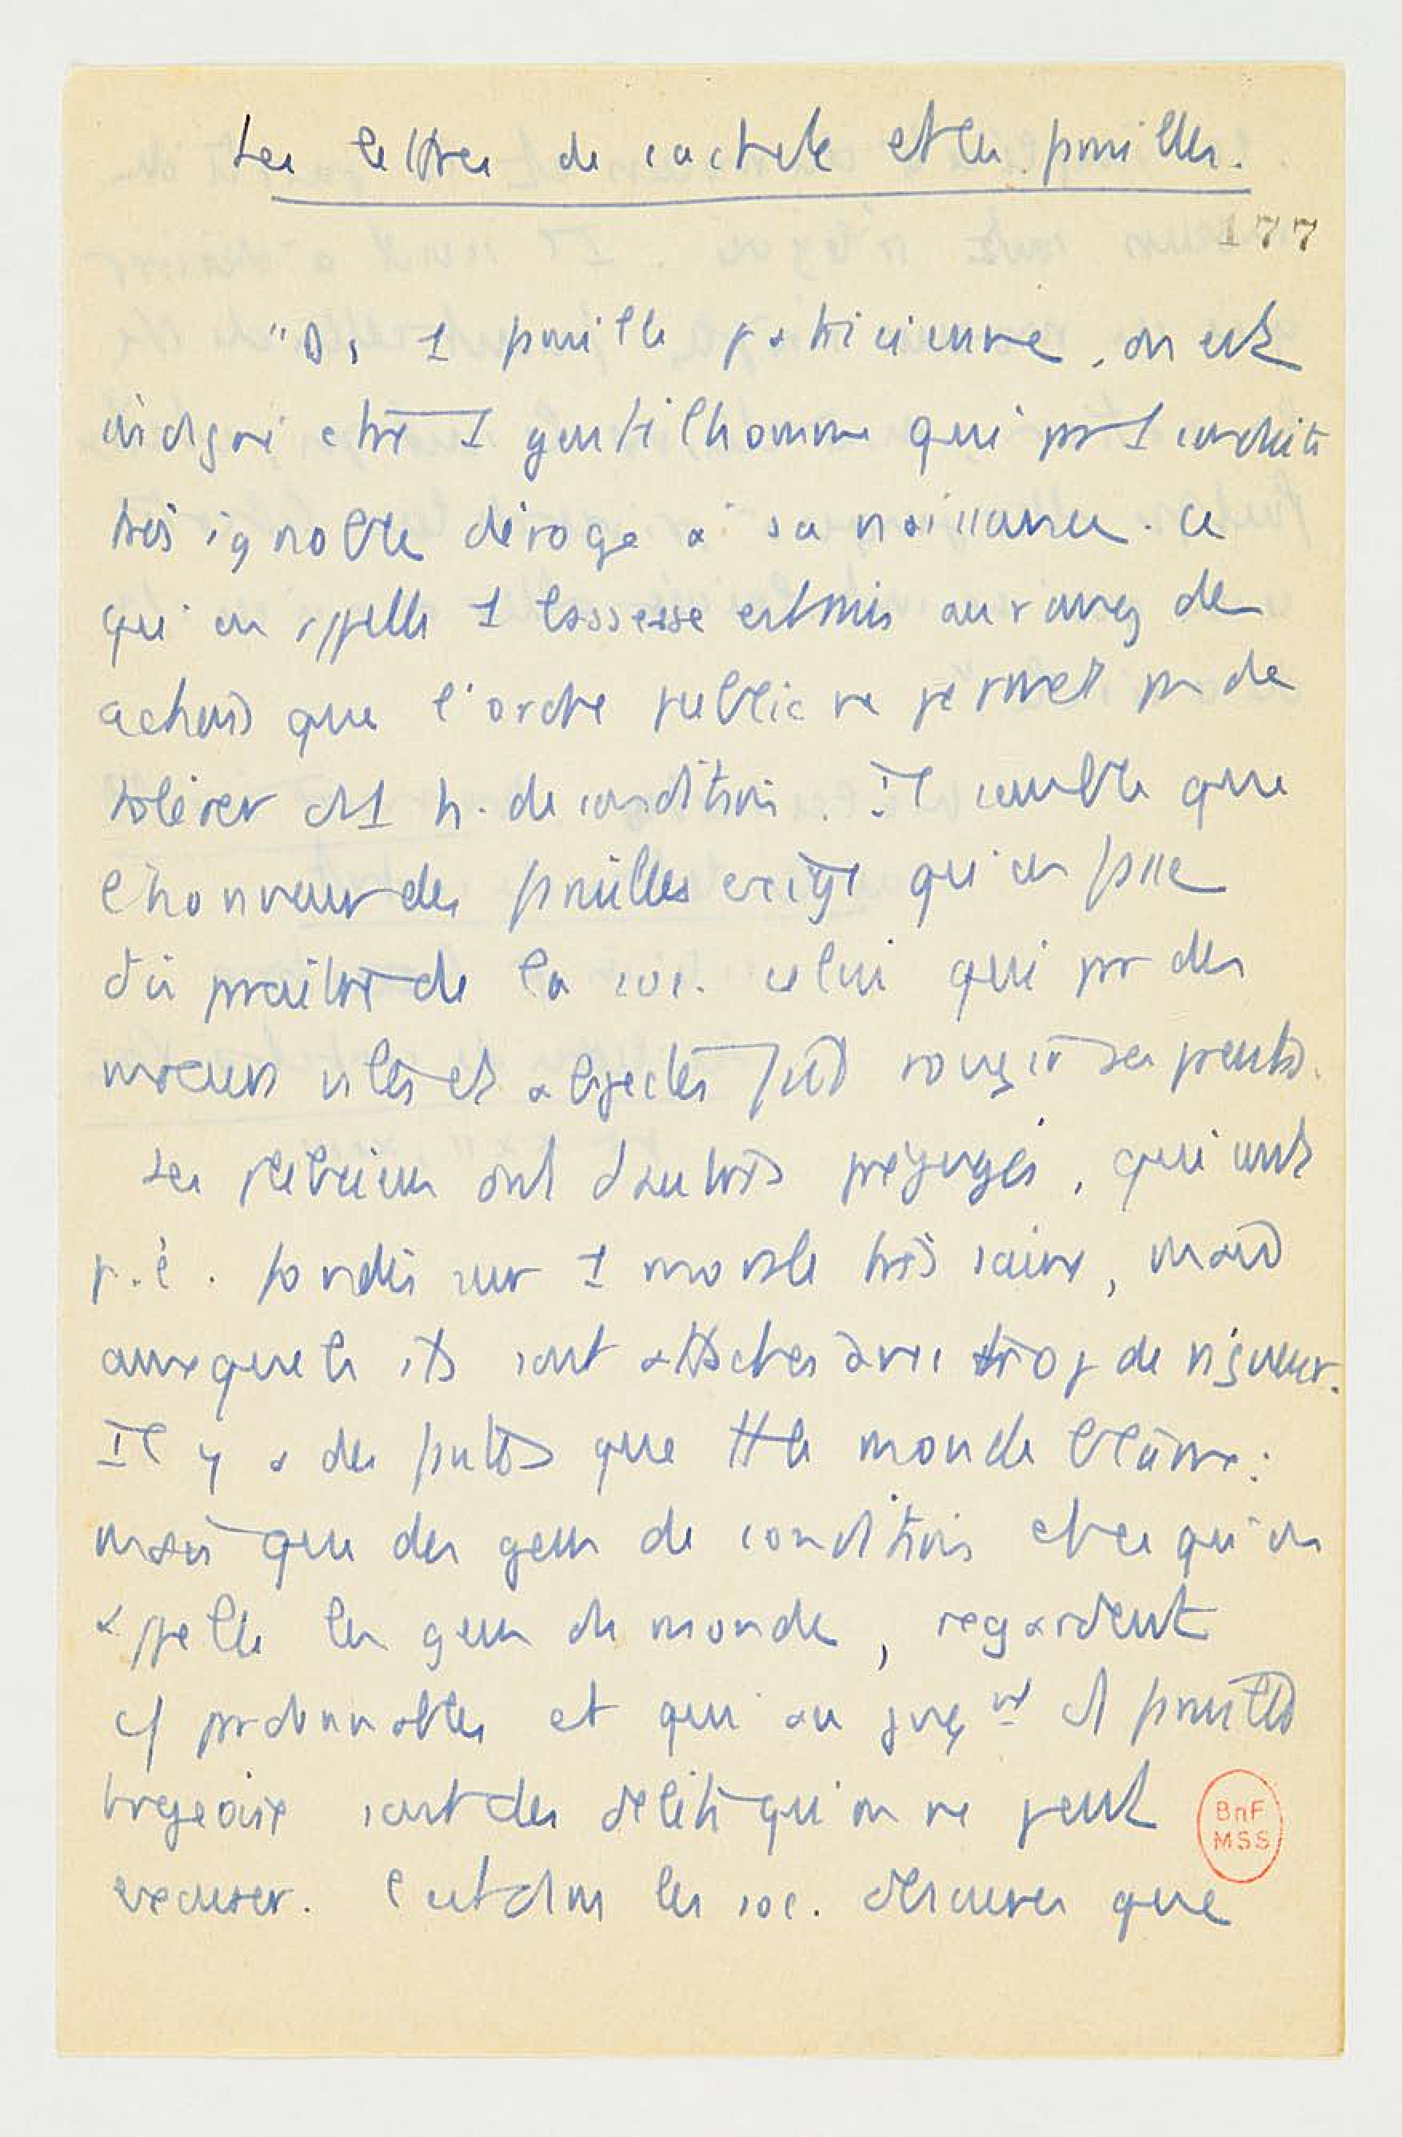 Les lettres de cachet et les familles.
177
"Ds 1 famille patricienne, on est
indigné ctre 1 gentilhomme qui par 1 conduite
très ignoble déroge à sa naissance. Ce
qu'on appelle 1 bassesse est mis au rang des
actions que l'ordre public ne permet pas de
tolérer ds 1 h. de condition. Il semble que
l'honneur des familles exige qu'on fasse
disparaître de la soc. celui qui par des
mœurs viles et abjectes fait rougir ses parents.
Les plébéiens ont d'autres préjugés, qui sont
p.ê. fondés sur 1 morale très saine, mais
auxquels ils sont attachés avec trop de rigueur.
Il y a des fautes que tt le monde blâme :
mais que des gens de condition et ce qu'on
appelle les gens du monde, regardent
cô pardonnables et qui au jugnt ds familles
brgeoise sont des délits qu'on ne peut
excuser. C'est dans les soc. obscures que
BnF
MSS